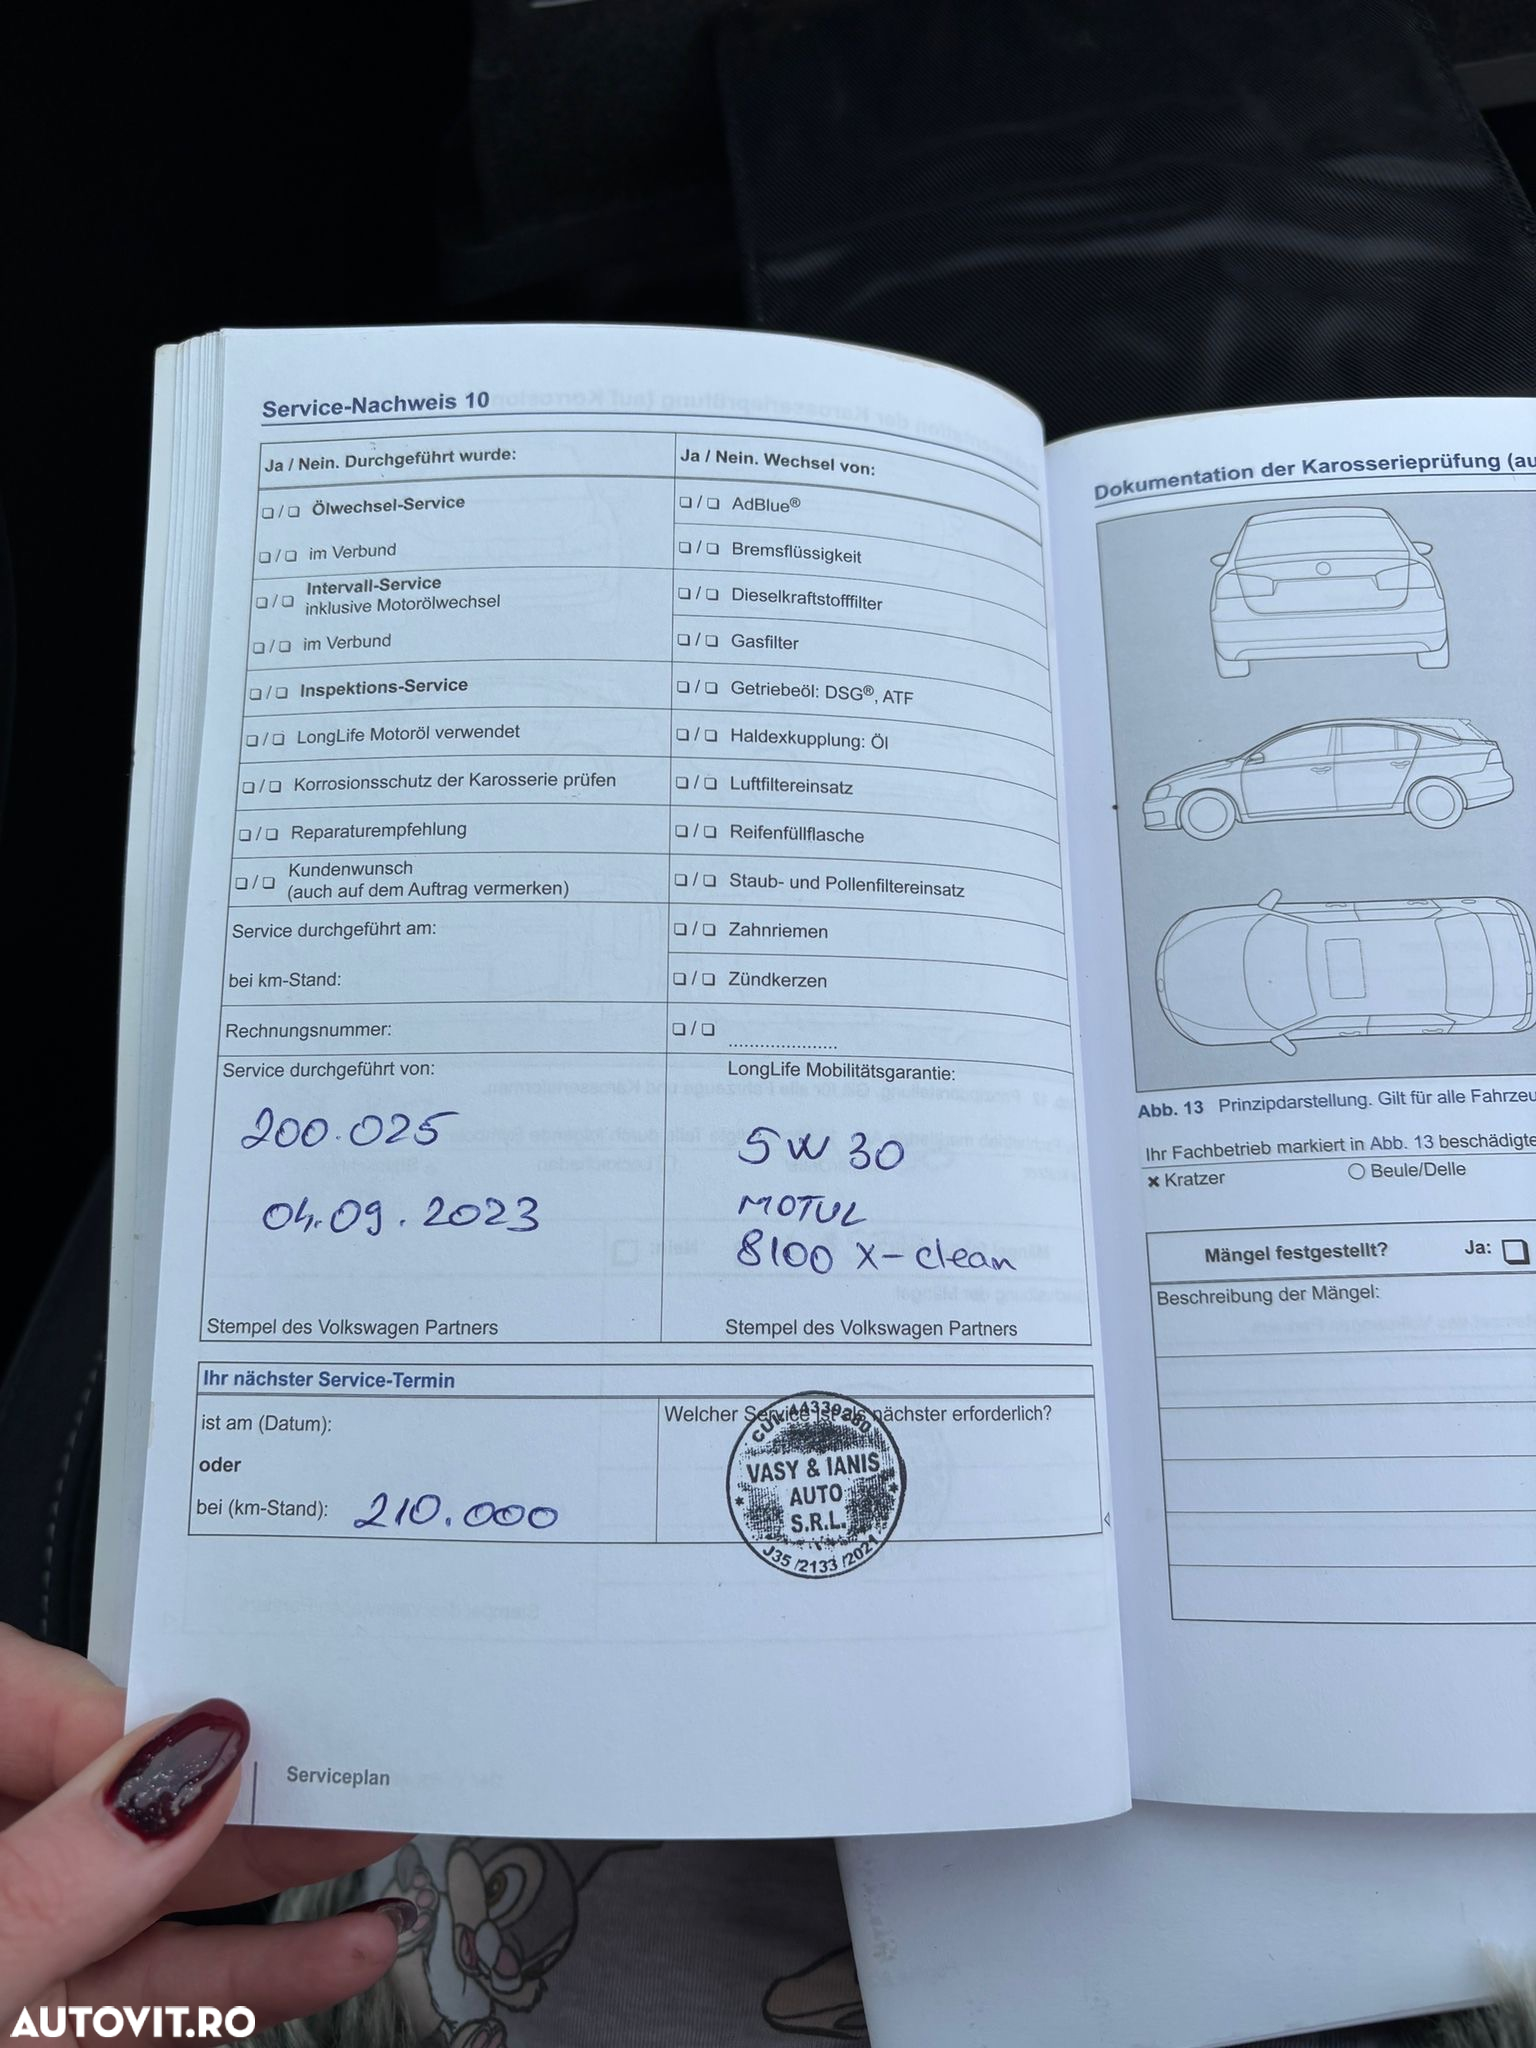 Service-Nachweis 10
Ja / Nein. Durchgeführt wurde:
❏ / ❏ Ölwechsel-Service
❏ / ❏ im Verbund
❏ / ❏ Intervall-Service
inklusive Motorölwechsel
❏ / ❏ im Verbund
❏ / ❏ Inspektions-Service
❏ / ❏ LongLife Motoröl verwendet
❏ / ❏ Korrosionsschutz der Karosserie prüfen
❏ / ❏ Reparaturempfehlung
❏ / ❏ Kundenwunsch
(auch auf dem Auftrag vermerken)
Service durchgeführt am:
bei km-Stand:
Rechnungsnummer:
Ja / Nein. Wechsel von:
❏ / ❏ AdBlue®
❏ / ❏ Bremsflüssigkeit
❏ / ❏ Dieselkraftstofffilter
❏ / ❏ Gasfilter
❏ / ❏ Getriebeöl: DSG®, ATF
❏ / ❏ Haldexkupplung: Öl
❏ / ❏ Luftfiltereinsatz
❏ / ❏ Reifenfüllflasche
❏ / ❏ Staub- und Pollenfiltereinsatz
❏ / ❏ Zahnriemen
❏ / ❏ Zündkerzen
❏ / ❏ .....................
Service durchgeführt von:
200.025
04.09.2023
Stempel des Volkswagen Partners
LongLife Mobilitätsgarantie:
5W30
MOTUL
8100 X-clean
Stempel des Volkswagen Partners
Ihr nächster Service-Termin
ist am (Datum):
oder
bei (km-Stand): 210.000
Welcher Service ist als nächster erforderlich?
VASY & IANIS
AUTO
S.R.L.
J35 /2133 /2021
Serviceplan
Dokumentation der Karosserieprüfung (au
Abb. 13 Prinzipdarstellung. Gilt für alle Fahrzeu
Ihr Fachbetrieb markiert in Abb. 13 beschädigte
× Kratzer ○ Beule/Delle
Mängel festgestellt? Ja: ❏
Beschreibung der Mängel:
AUTOVIT.RO